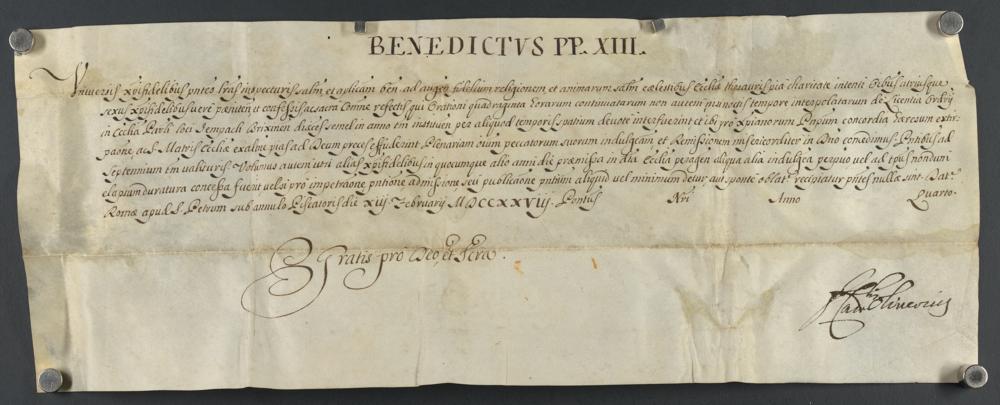 BENEDICTVS PP. XIII.
Universis Xpifidelibus pntes lras inspecturis salm et aplicam ben. ad augen fidelium religionem et animarum salm cælestibus Ecclia thesauris pia charitate intenti Oibus utriusque
sexus Xpifidelibus vere pæniten et confessis ac sacra Comne refectis qui Orationi quadraginta Horarum continuatarum non autem ptæ noctis tempore interpolatarum de licentia Ordrij
in Ecclia Parli loci Sempach Brixinen diæces semel in anno tm instituen per aliquod temporis spatium devote interfuerint et ibi pro Xpianorum Pnpum concordia Hæresum extir-
paone, ac S. Matris Ecclia exaltne pias ad Deum preces effuderint, Plenariam oium peccatorum suorum indulgeam et Remissionem misericorditer in Dno concedimus. Pntibus ad
septennium tm valituris. Volumus autem ut si alias Xpifidelibus in quocumque alio anni die præmissa in dta Ecclia peragen aliqua alia indulgea perpuo vel ad tpus nondum
elapsum duratura concessa fuerit vel si pro impetraone pntione admissione seu publicaone pntium aliquid vel minimum detur aut sponte oblat. recipiatur pntes nullæ sint. Dat.
Romæ apud S. Petrum sub annulo Piscatoris die xiij Februarij MDCCXXVIIJ. Pontus Nri Anno Quarto.
Gratis pro Deo, et Scra.